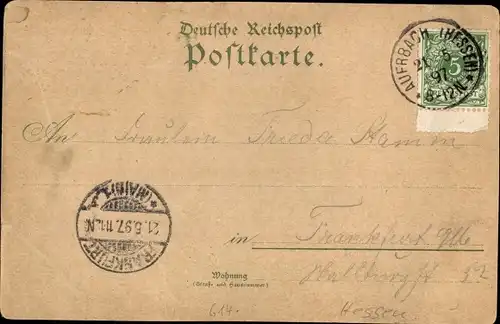 Deutsche Reichspost
Postkarte.
AUERBACH (HESSEN)
21 5
97
8-12N
5
An Fräulein Frieda
FRANKFURT
(MAIN) 1
21.5.97. 11-12N
in Frankfurt a/M
Wohnung
(Straße und Hausnummer)
614.
Hessen